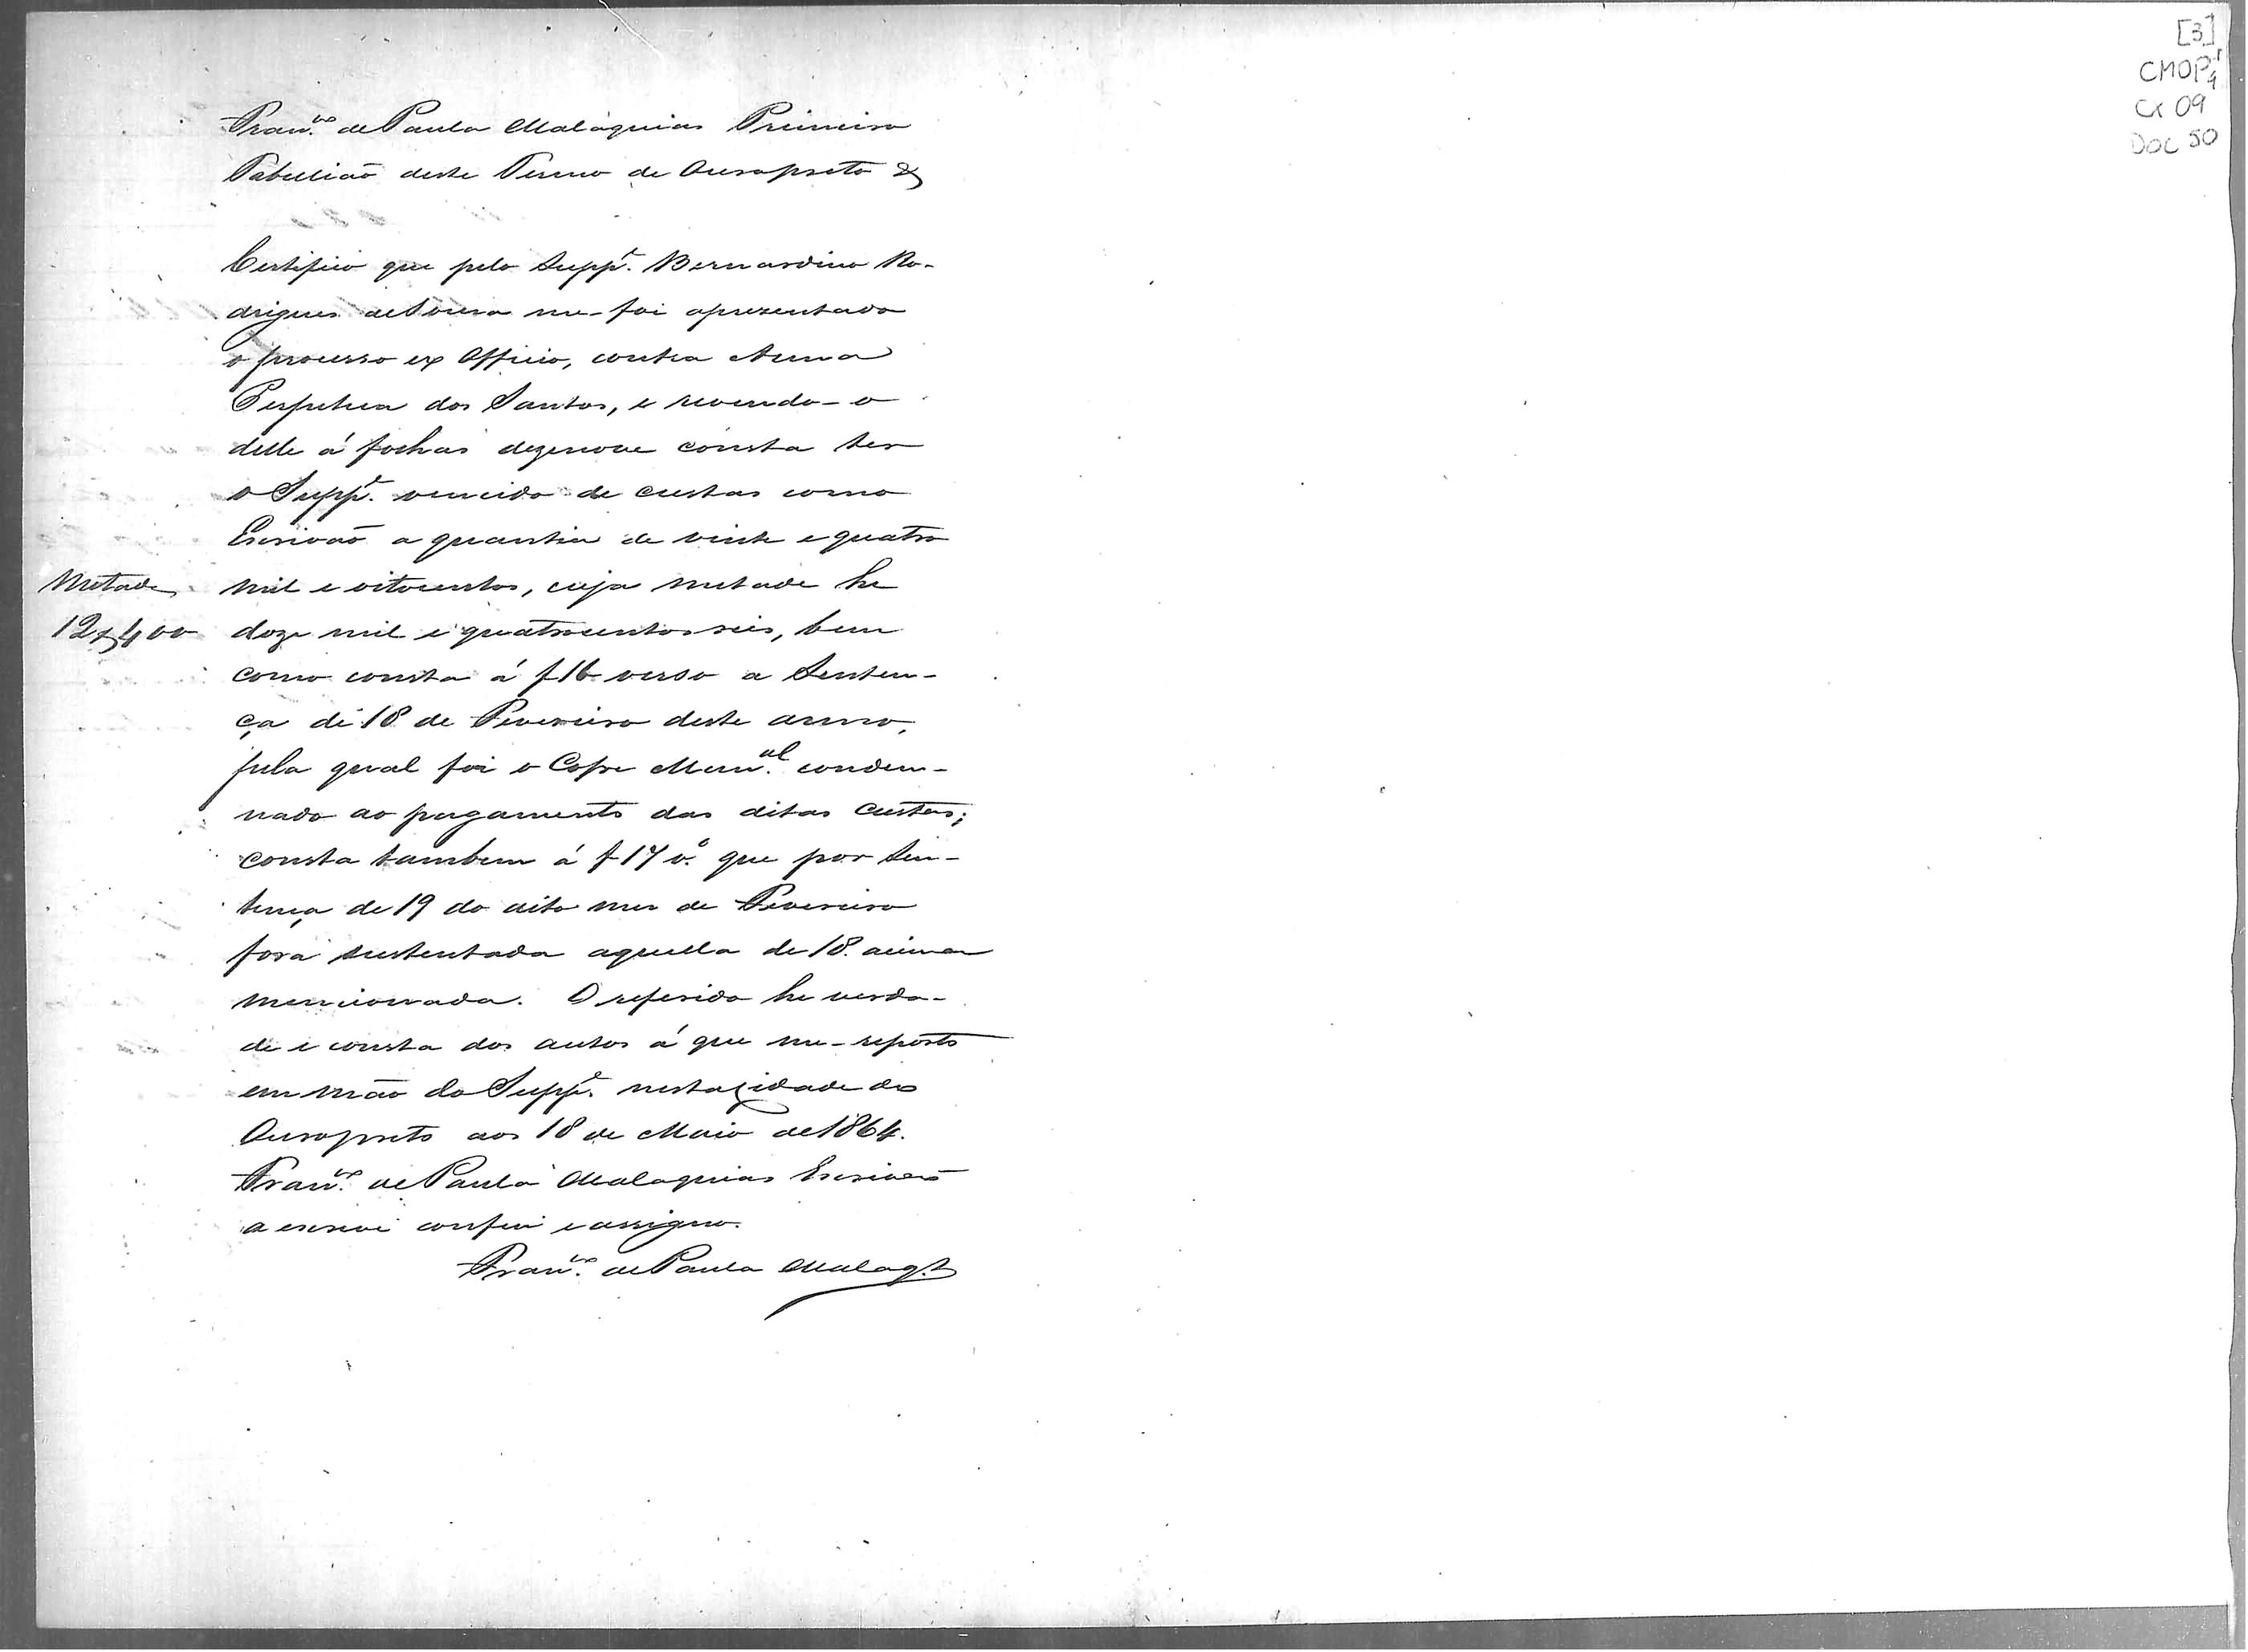 [3]
CMOP
Cx 09
DOC 50
Fran.co de Paula Malaquias Primeiro
Tabelião deste Termo de Ouropreto &
Certifico que pelo Supp.e Bernardino Ro-
drigues de Sousa me-foi apresentado
o processo ex Officio, contra Anna
Perpetua dos Santos, e revendo-o
delle á folhas dezenove consta ter
o Supp.e vencido de custas como
Escrivaõ a quantia de vinte e quatro
mil e oitocentos, cuja metade he
Metade
12$400
doze mil e quatrocentos reis, bem
como consta á f 16 verso a Senten-
ça de 18 de Fevereiro deste anno,
pela qual foi o Cofre Mun.al condem-
nado ao pagamento das ditas custas;
consta tambem á f 17 v.o que por Sen-
tença de 19 do dito mes de Fevereiro
fora sustentada aquella de 18 acima
mencionada. O referido he verda-
de e consta dos autos á que me-reporto
em mão do Supp.e nesta Cidade do
Ouropreto aos 18 de Maio de 1864.
Fran.co de Paula Malaquias Escrivaõ
a escrevi conferi e assigno.
Fran.co de Paula Malaq.s